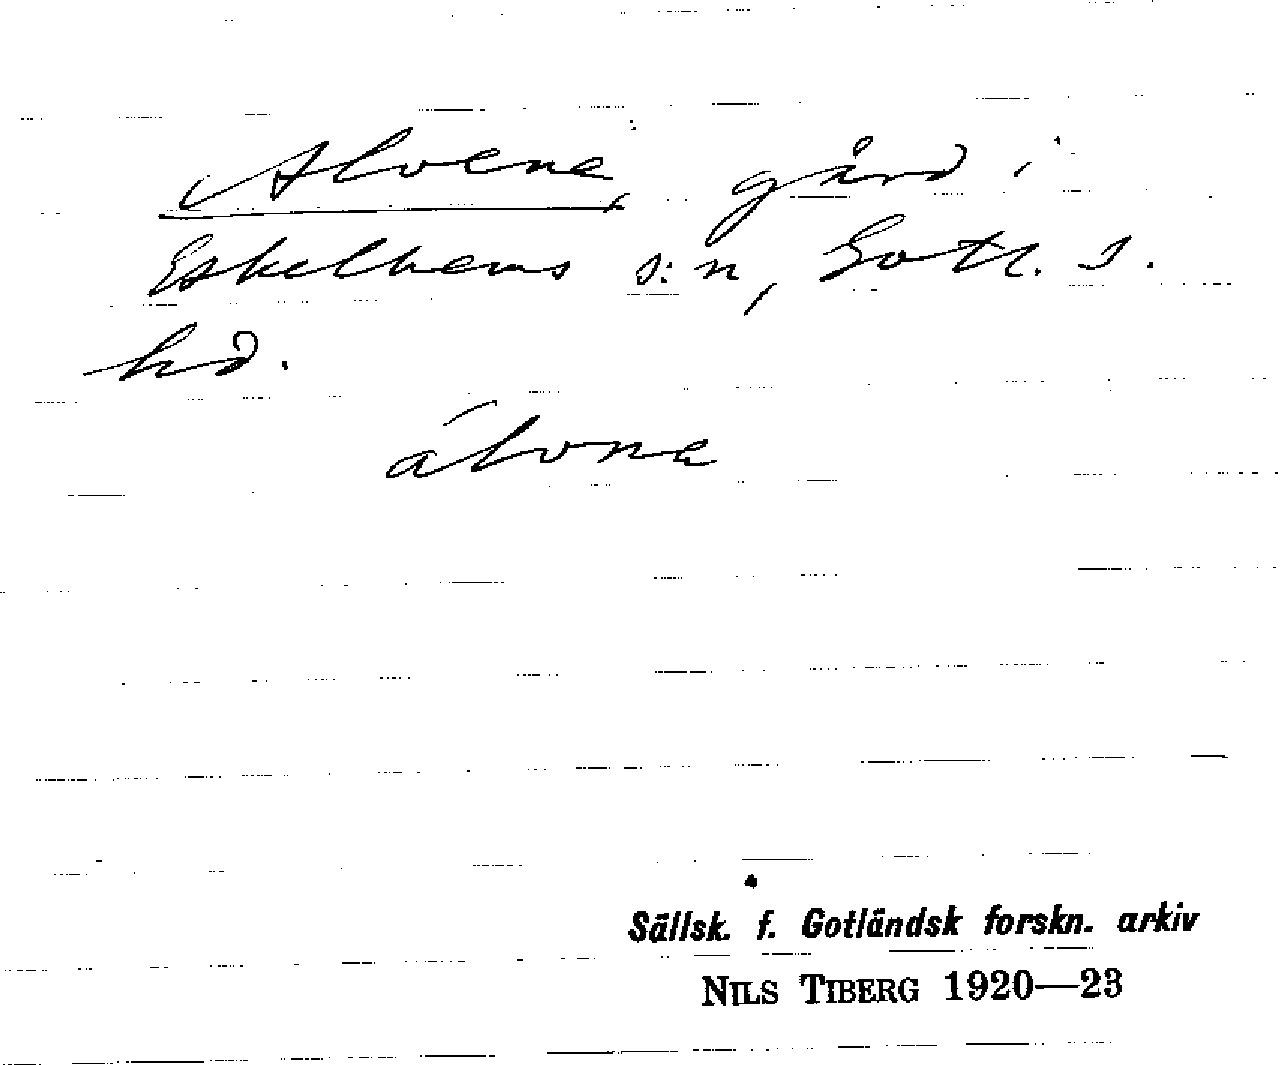 Alvena, gård i
Eskelhems s:n, Gotl. s.
hd.
álvna
Sällsk. f. Gotländsk forskn. arkiv
NILS TIBERG 1920—23